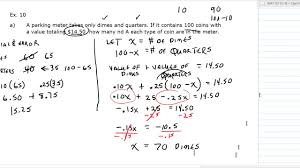 Ex: 10
a) A parking meter takes only dimes and quarters. If it contains 100 coins with
a value totaling $14.50, how many nd A each type of coin are in the meter?
10 90
100-10
LET X = # OF DIMES
100-X = # OF QUARTERS
VALUE OF DIMES + VALUE OF QUARTERS = 14.50
.10X + .25(100-X) = 14.50
.10X + 25 - .25X = 14.50
-.15X + 25 = 14.50
-25 -25
-.15X = -10.5
-.15 -.15
X = 70 DIMES
65 35 100-65
.10(65) .25(35)
6.50 + 8.75
15.25